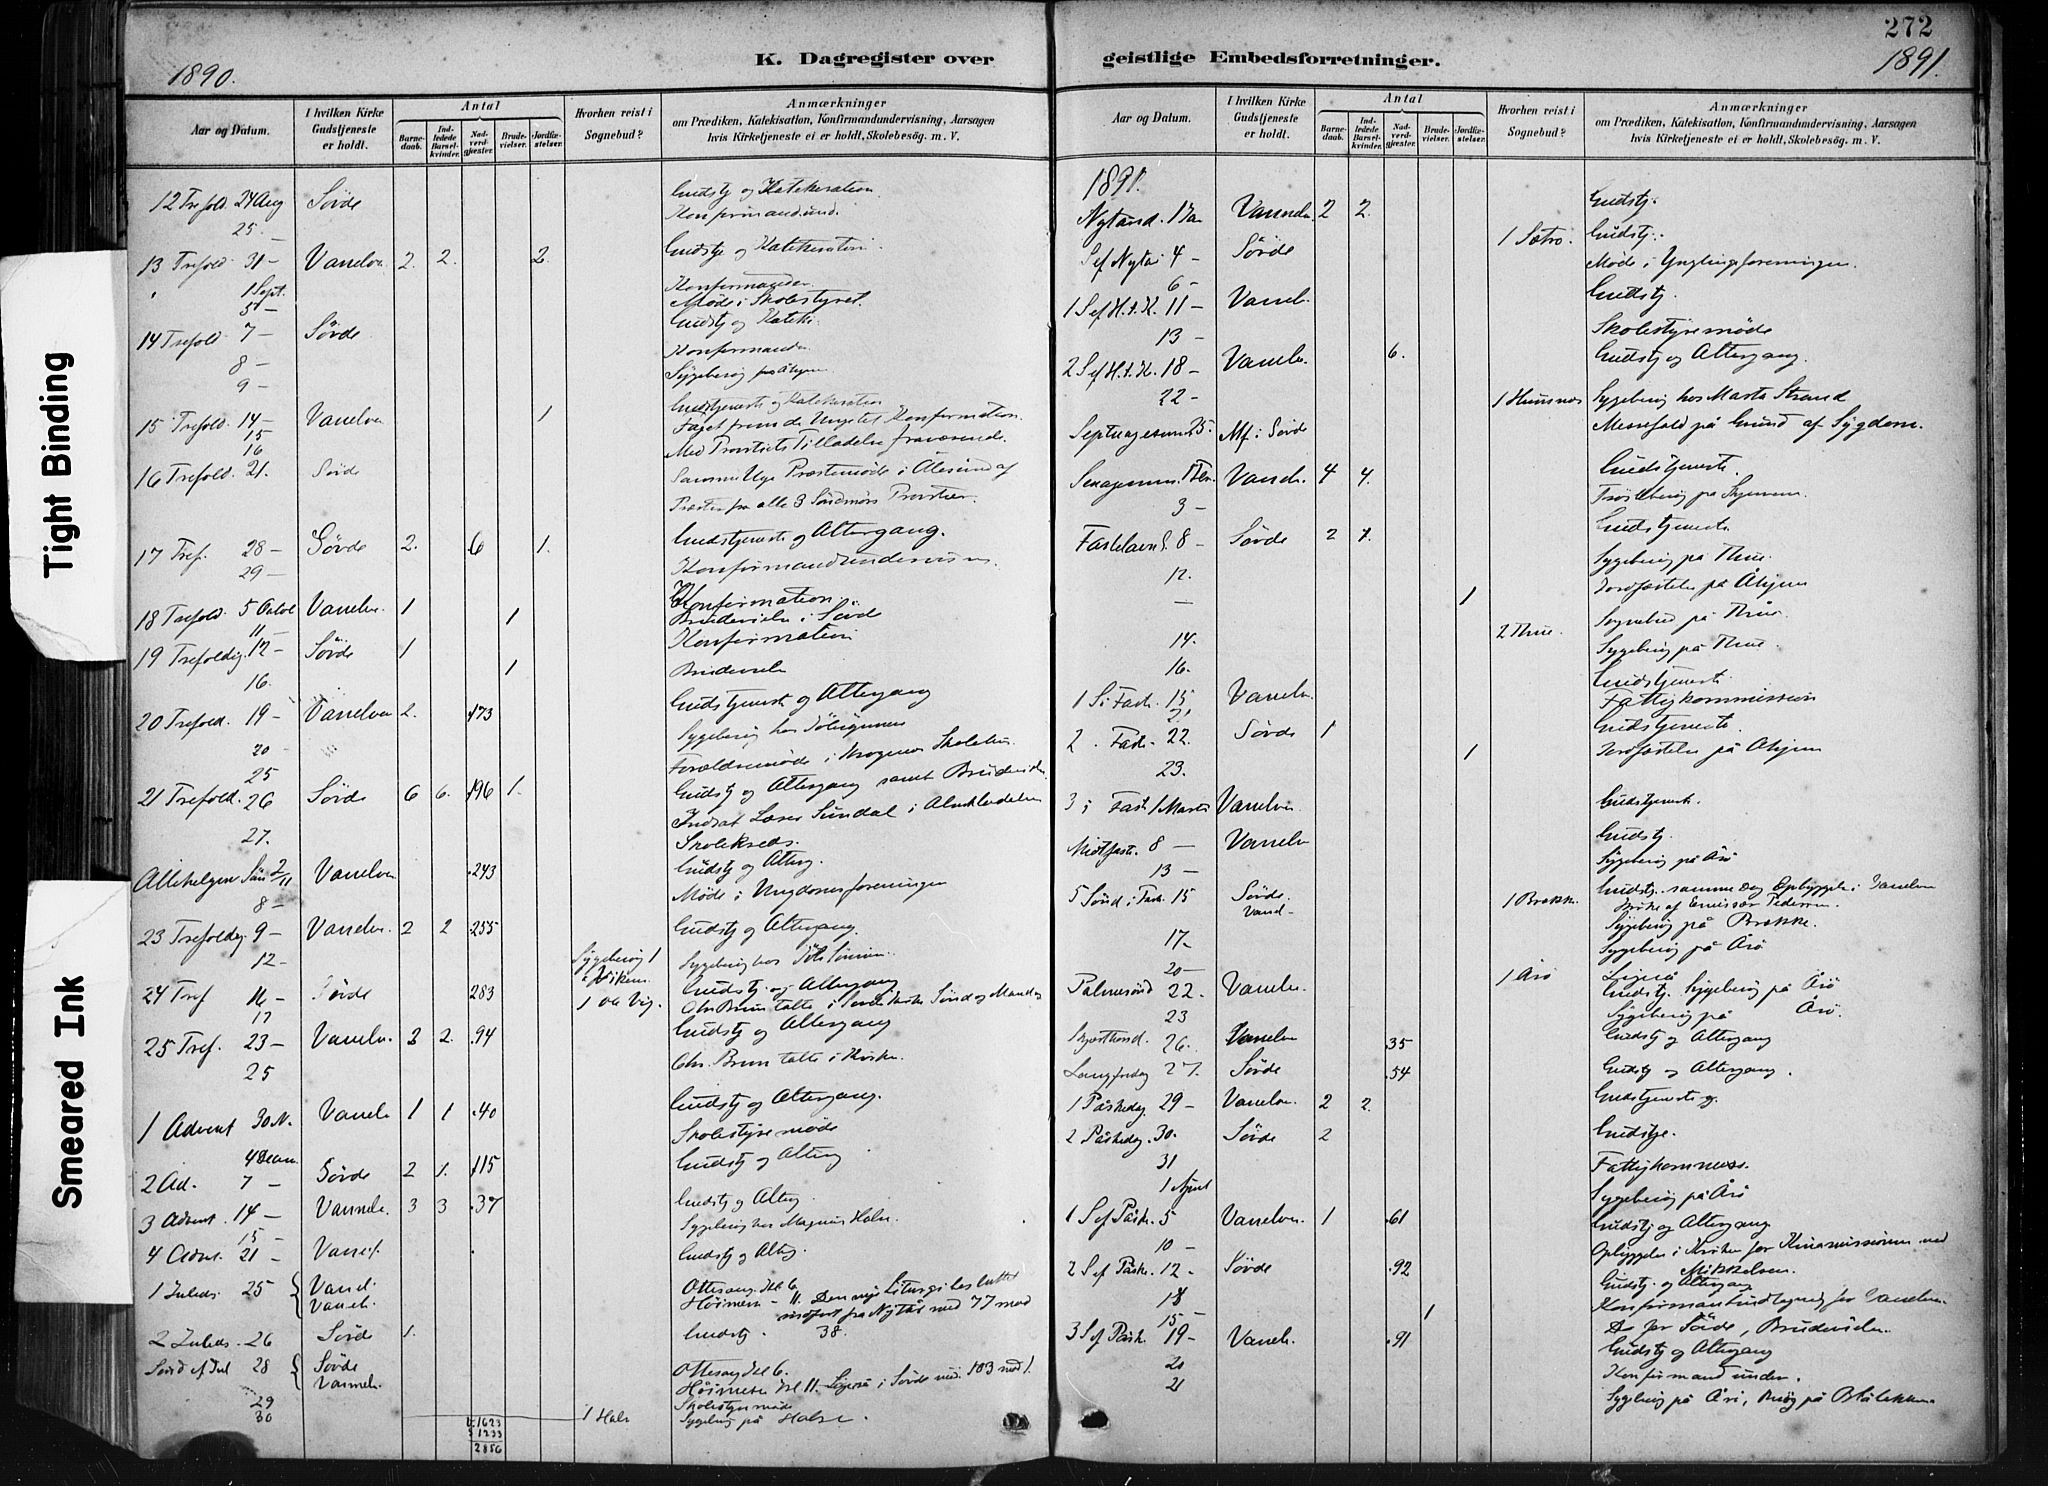 272
K. Dagregister over geistlige Embedsforretninger.
1890.
1891.
Tight Binding
Smeared Ink
Aar og Datum.
I hvilken Kirke Gudstjeneste er holdt.
Antal
Barnedaab.
Indledede Barselkvinder.
Nadverdgjæster.
Brudevielser.
Jordfæstelser.
Hvorhen reist i Sognebud?
Anmærkninger
om Prædiken, Katekisation, Konfirmandundervisning, Aarsagen hvis Kirketjeneste ei er holdt, Skolebesøg. m. V.
12 Trefold. 24 Aug Sövde Gudstj og Katekesation
25. Konfirmandund.
13 Trefold. 31 – Vanelven 2. 2. 2. Gudstje og Katekesation
1 Sept. Konfirmander
5 – Möde i Skolestyret.
14 Trefold. 7 – Sövde Gudstj og Kateke.
8 – Konfirmander
9 – Sygebesög på Åhjem
15 Trefold. 14 – Vanelven 1 Gudstjeneste og Katekesation
15
16 Med Provstiets Tilladelse fraværende.
16 Trefold. 21. Sövde Samme Uge Præstemöde i Ålesund af
Præster fra alle 3 Söndmörs Provstier.
17 Tref. 28 – Sövde 2. 6 1. Gudstjeneste og Altergang.
29 – Konfirmandundervisn.
18 Trefold. 5 Octob Vanelven 1 Konfirmation
11 – 1 Brudevielse i Sövde
19 Trefoldig. 12 – Sövde 1 Konfirmation
16. 1 Brudevielse
20 Trefold. 19 – Vanelven 2. 173 Gudstjeneste og Altergang
20 – Sygebesög hos
25 Forældremöde i Krogenes Skolehus.
21 Trefold. 26 Sövde 6 6. 196 1. Gudstj og Altergang samt Brudevielse
27. Skolekreds.
Allehelgen Sön 2/11 Vanelven 243 Gudstj og Alterg.
8 – Möde i Ungdomsforeningen
23 Trefoldig. 9 – Vanelven 2 2 255 Gudstj og Altergang.
12 – Sygebesög 1 Viken Sygebesög hos
24 Tref 16 – Sövde 283 Gudstj og Altergang
17 1 på Vig. Chr Brun talte i Sovde Kirke Sönd og Mandag
25 Tref. 23 – Vanelven 2 2. 94 Gudstj og Altergang
25 Chr. Brun talte i Kirken.
1 Advent 30 N. Vanelv 1 1 40 Gudstj og Altergang.
4 Decem Skolestyremöde
2 Ad. 7 – Sövde 2 1. 115 Gudstj og Alterg
3 Advent 14 – Vannelv 3 3 37 Gudstj og Alterg.
15 – Sygebesög hos Magnus Halse.
4 Advent. 21 – Vanelv Gudstj og Alterg
1 Juleds. 25 Vanel. Ottesang Kl 6
Vanelv. Höimesse – 11. Den nye Liturgi besluttet
indfört fra Nytår med 77 mod
2 Juleds. 26 Sövde 1. Gudstj. 38.
Sönd ef Jul 28 Sövde Ottesang Kl 6.
Vannelv. Höimesse Kl 11. Ligeså i Sövde med 103 mod 1.
29 Skolestyremöde
30 1 Halse Sygebesög på Halse.
1623
1233
2856
1891.
Nytårsd. 1 Jan Vannelv. 2 2. Gudstj.
S ef Nytår 4 – Sövde 1 Sætre. Gudstj.
6 – Möde i Ynglingeforeningen.
1 S ef H. t. K. 11 – Vanelv. Gudstj.
13 – Skolestyremöde
2 S ef H. t. K. 18 – Vanelv. 6. Gudstj og Altergang.
22 – 1 Humsnes Sygebesög hos Marta Strand
Septuagesima 25. Mf. i Sövde Messefald på Grund af Sygdom.
Sexagesima 1 Febr. Vanelv. 4 4. Gudstjeneste.
3 –
Fastelavns. 8 – Sövde 2 1. Gudstjeneste
12. Sygebesög på Thue.
– 1 Jordfæstelse på Åhjem
2 Thue. Sognebud på Thue
14. Sygebesög på Thue.
16.
1 S i Fast. 15 Vanelv. Gudstjeneste
21 Fattigkommission
2 Fast. 22. Sövde 1 Gudstjeneste
23. 1 Jordfæstelse på Åhjem
3 i Fast 1 Marts Vanelven Gudstjeneste
Midtfaste 8 – Vanelv Gudstj
13 – Sygebesög på Årö
5 Sönd i Fast. 15 Sövde. 1 Brekke. Gudstj. samme Dag Opbyggelse i Vanelven
Vanel – Kirke af Emissær Pedersen
17 – Sygebesög på Brekke.
20 – Sygebesög på Årö
Palmesönd 22. Vanelv. 1 Årö Gudstj. Sygebesög på Årö
23 Sygebesög på Årö.
Skjærthorsd. 26. Vanelv 35 Gudstj og Altergang
Langfredag 27. Sövde 54 Gudstj og Altergang.
1 Påskedag. 29 – Vanelv. 2 2. Gudstjeneste
2 Påskedag. 30. Sövde 2 Gudstje.
31 Fattigkommiss.
1 April Sygebesög på Årö
1 S ef Påsk. 5 Vanelven 1 61 Gudstj og Altergang
10 – Opbyggelse i Kirken for Kinamissionen ved Mikkelsen.
2 S ef Påske. 12 – Sövde 92 Gudstj. og Altergang
Konfirmandudtegning for Vanelven
15 – 1 Do for Sövde, Brudevielse.
3 S ef Påsk. 19 – Vanelv. 91 Gudstj og Altergang
20 Konfirmandunderv.
21